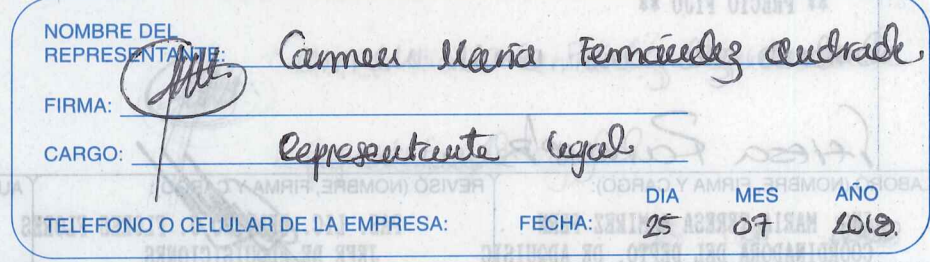 NOMBRE DEL
REPRESENTANTE: Carmen María Fernández Andrade
FIRMA:
CARGO: Representante legal
DIA MES AÑO
TELEFONO O CELULAR DE LA EMPRESA: FECHA: 25 07 2018.